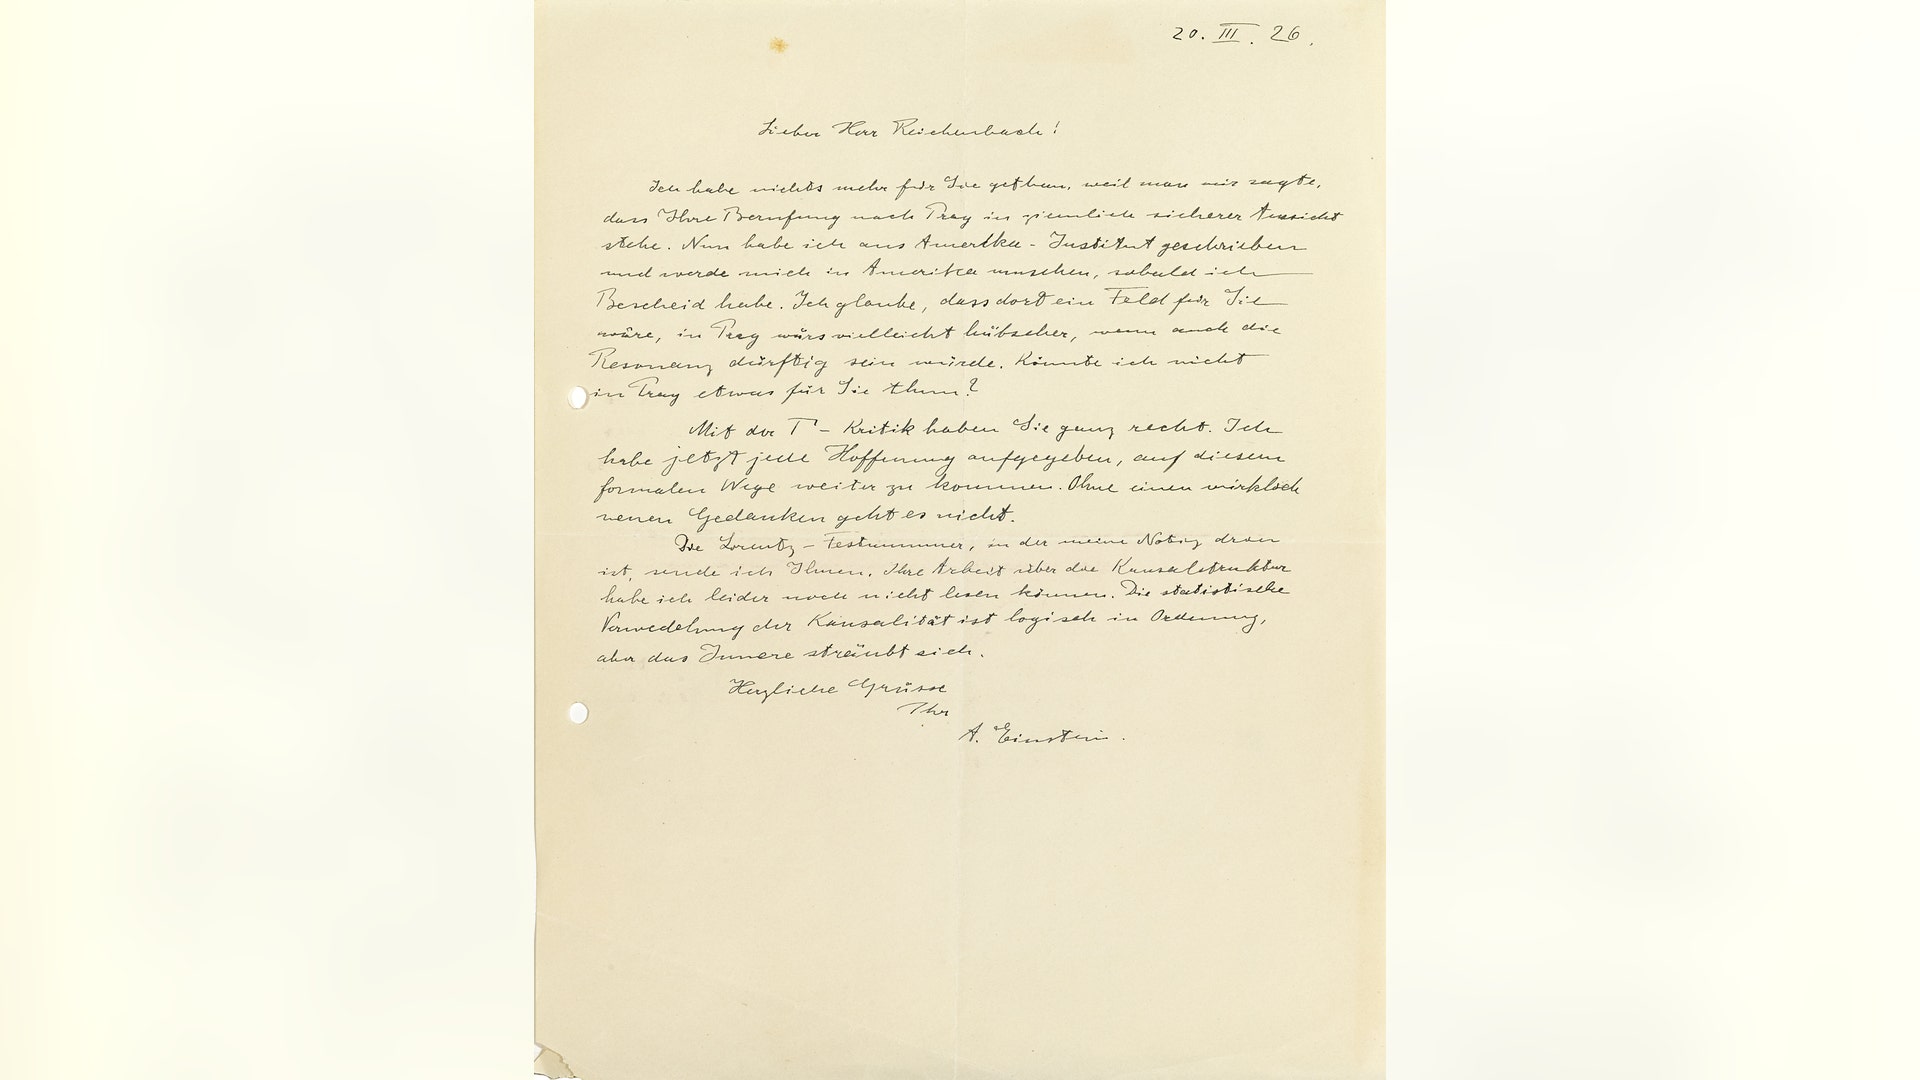 20. III. 26.
Lieber Herr Reichenbach!
Ich habe nichts mehr für Sie gethan, weil man mir sagte,
dass Ihre Berufung nach Prag in ziemlich sicherer Aussicht
stehe. Nun habe ich ans Amerika-Institut geschrieben
und werde mich in Amerika umsehen, sobald ich
Bescheid habe. Ich glaube, dass dort ein Feld für Sie
wäre, in Prag wärs vielleicht hübscher, wenn auch die
Resonanz dürftig sein würde. Könnte ich nicht
in Prag etwas für Sie thun?
Mit der Γ-Kritik haben Sie ganz recht. Ich
habe jetzt jede Hoffnung aufgegeben, auf diesem
formalen Wege weiter zu kommen. Ohne einen wirklich
neuen Gedanken geht es nicht.
Die Lorentz-Festnummer, in der meine Notiz dran
ist, sende ich Ihnen. Ihre Arbeit über die Kausalstruktur
habe ich leider noch nicht lesen können. Die statistische
der Kausalität ist logisch in Ordnung,
aber das Innere sträubt sich.
Herzliche Grüsse
Ihr
A. Einstein.